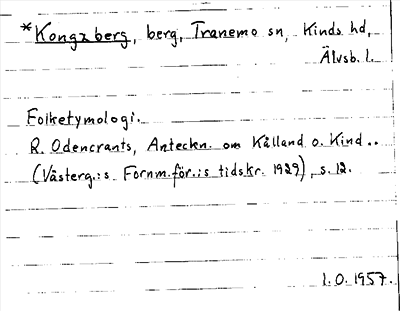 *Kongzberg, berg, Tranemo sn, Kinds hd,
Älvsb. l.
Folketymologi.
R. Odencrants, Anteckn. om Kålland o. Kind..
(Västerg.:s Fornm.för.:s tidskr. 1929), s. 12.
I.O. 1957.